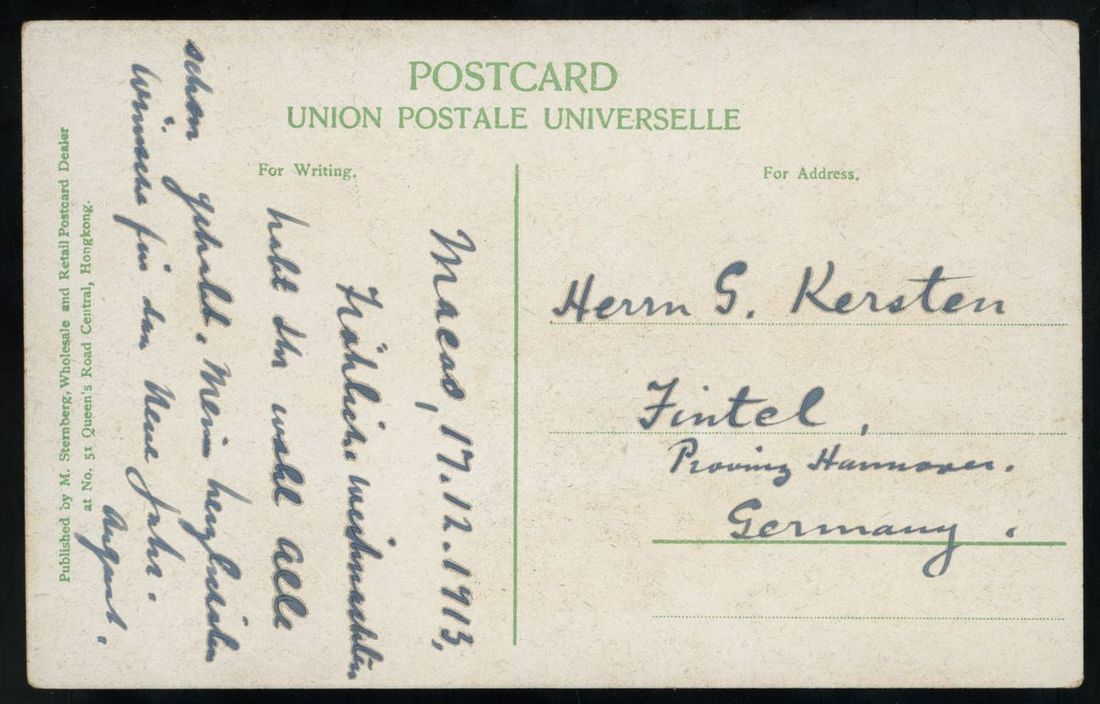 POSTCARD
UNION POSTALE UNIVERSELLE
For Writing.
For Address.
Macao, 17.12.1913.
Fröhliche weihnachten
habt Ihr wohl alle
schon gehabt. Meine herzlichsten
Wünsche für das Neue Jahr.
August.
Herrn G. Kersten
Fintel,
Provinz Hannover.
Germany.
Published by M. Sternberg, Wholesale and Retail Postcard Dealer
at No. 51 Queen's Road Central, Hongkong.